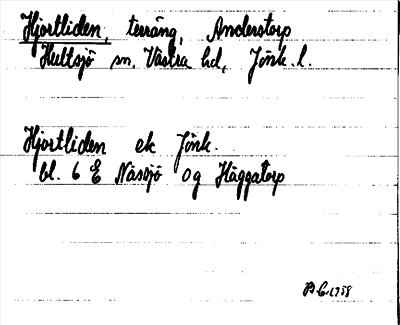 Hjortliden, terräng, Anderstorp
Hultsjö sn, Västra hd, Jönk. l.
Hjortliden ek Jönk.
bl. 6 E Nässjö og Häggatorp
1958